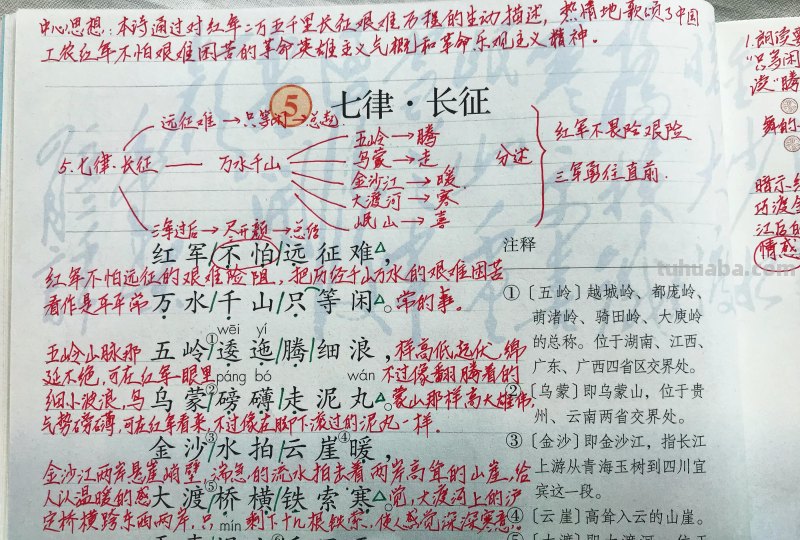 中心思想：本诗通过对红军二万五千里长征艰难历程的生动描述，热情地歌颂了中国
工农红军不怕艰难困苦的革命英雄主义气概和革命乐观主义精神。
5 七律·长征
远征难→只等闲→总起
5.七律·长征 — 万水千山
五岭→腾
乌蒙→走
金沙江→暖
大渡河→寒
岷山→喜
分述
三军过后→尽开颜→总结
红军不畏险艰险
三军勇往直前.
红军/不怕/远征难，
红军不怕远征的艰难险阻，把历经千山万水的艰难困苦
看作是平平常 万水/千山/只等闲。常的事。
wēi yí
五岭山脉那 五岭①/逶迤/腾/细浪，样高低起伏，绵
延不绝，可在红军眼里 páng bó wán 不过像翻腾着的
细小波浪，乌 乌蒙②/磅礴/走泥丸。蒙山那样高大雄伟，
气势磅礴，可在红军看来，不过像在脚下滚过的泥丸一样。
金沙③/水拍/云崖④暖，
金沙江两岸悬崖峭壁，湍急的流水拍击着两岸高耸的山崖，给
人以温暖的感 大渡⑤/桥横/铁索寒。觉，大渡河上的泸
定桥横跨东西两岸，只 mín 剩下十几根铁索，使人感觉深深寒意。
注释
①〔五岭〕越城岭、都庞岭、
萌渚岭、骑田岭、大庾岭
的总称。位于湖南、江西、
广东、广西四省区交界处。
②〔乌蒙〕即乌蒙山，位于贵
州、云南两省交界处。
③〔金沙〕即金沙江，指长江
上游从青海玉树到四川宜
宾这一段。
④〔云崖〕高耸入云的山崖。
1.朗读要
"只等闲
没"腾
舞的
暗示
巧渡金
江后的
情感
tuhuaba.com